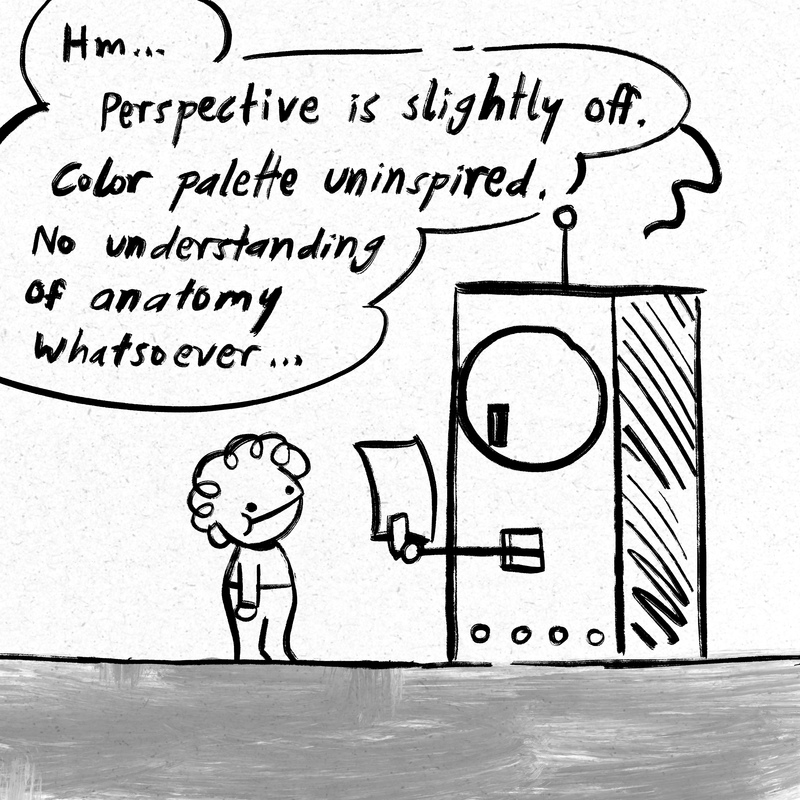 Hm...
Perspective is slightly off.
Color palette uninspired.
No understanding
of anatomy
whatsoever...